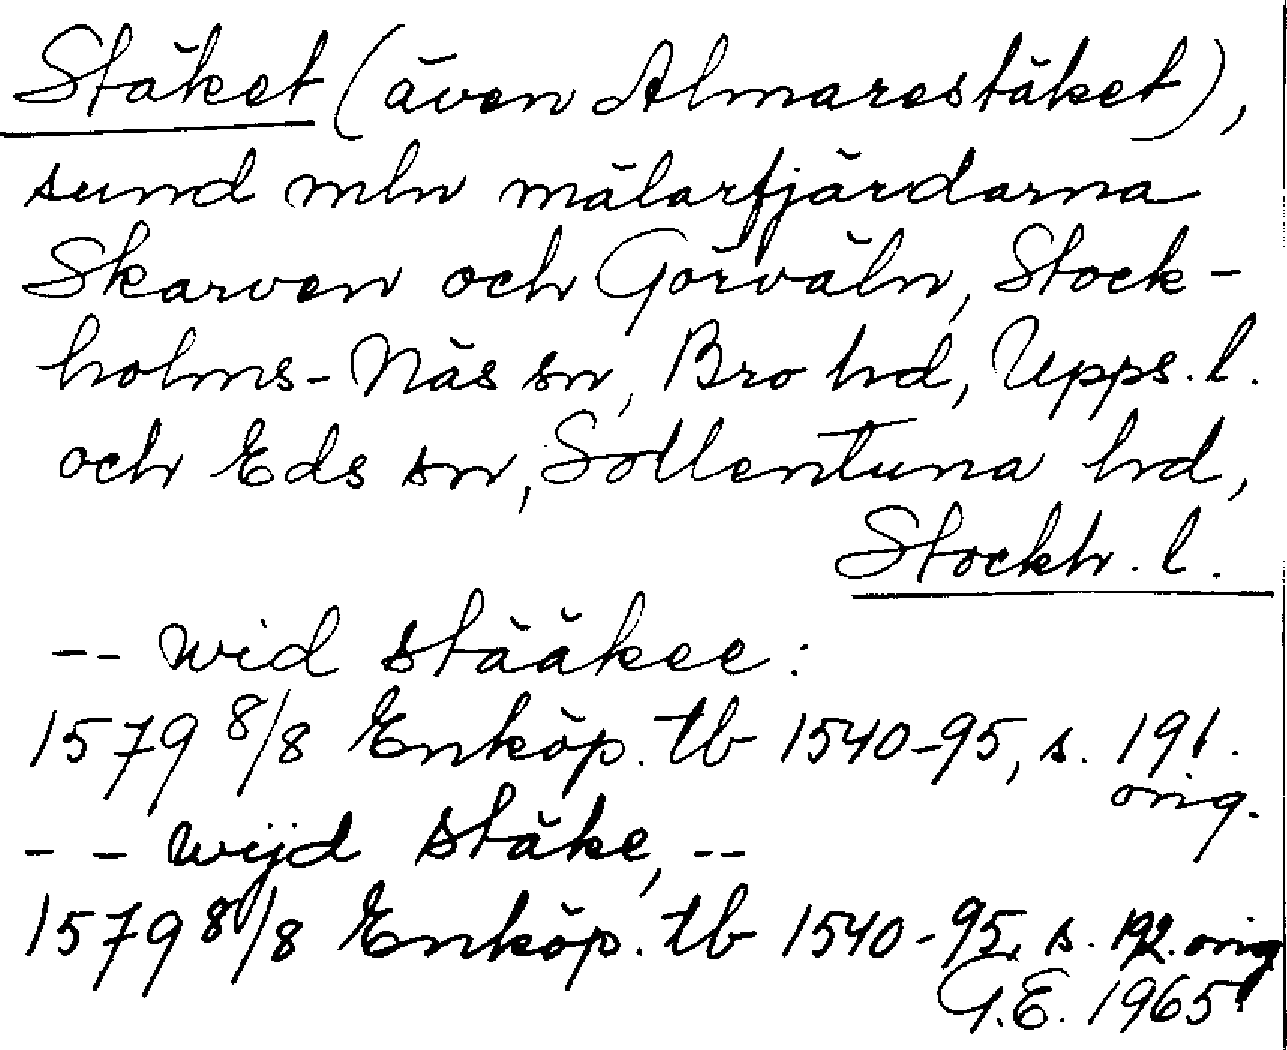 Stäket (även Almarestäket),
sund mln mälarfjärdarna
Skarven och Görväln, Stock-
holms-Näs sn, Bro hd, Upps. l.
och Eds sn, Sollentuna hd,
Stockh. l.
-- wid stääkee:
1579 8/8 Enköp. tb 1540-95, s. 191.
orig.
-- wijd stäke, --
1579 8/8 Enköp. tb 1540-95, s. 192. orig
G.E. 1965